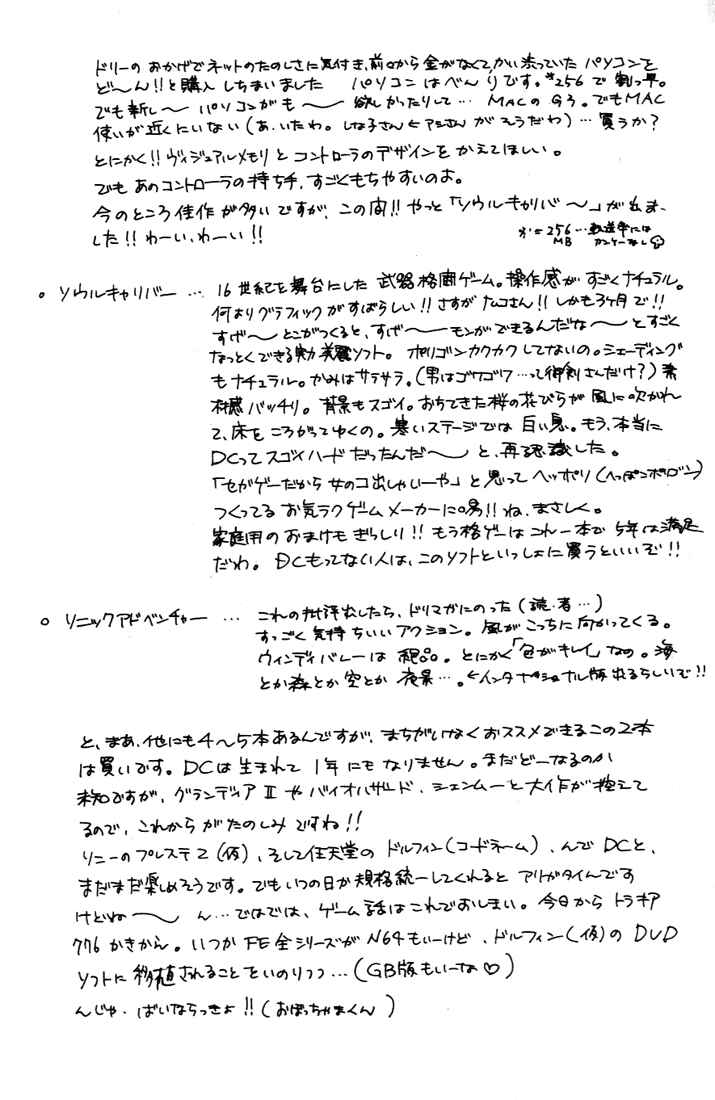 ドリーのおかげでネットのたのしさに気付き、前々から金がなくてかい渋っていたパソコンを
ど〜ん!!と購入しちまいました パソコンはべんりです。*256で割っ早。
でも新し〜パソコンがも〜〜欲しかったりして… MACのG3。でもMAC
使いが近くにいない(あ、いたわ。しな子さん←アシさんがそうだわ)…買うか?
とにかく!!ヴィジュアルメモリとコントローラのデザインをかえてほしい。
でもあのコントローラの持ち手、すごくもちやすいのよ。
今のところ佳作が多いですが、この間!!やっと「ソウルキャリバ〜」が出ま
した!!わーい、わーい!!
*=256…転送率には
MB カンケーなし
○ソウルキャリバー … 16世紀を舞台にした武器格闘ゲーム。操作感がすごくナチュラル。
何よりグラフィックがすばらしい!!さすがナムコさん!!しかも3ヶ月で!!
すげ〜とこがつくると、すげ〜〜モンができるんだな〜〜とすごく
なっとくできる美麗ソフト。ポリゴンカクカクしてないの。シェーディング
もナチュラル。かみはサラサラ。(男はゴワゴワ…って御剣さんだけ?)素
材感バッチリ。背景もスゴイ。おちてきた桜の花びらが風に吹かれ
て、床をころがってゆくの。寒いステージでは白い息。もう、本当に
DCってスゴイハードだったんだ〜と、再認識した。
「セガゲーだから女のコ出しゃいーや」と思ってヘッポリ(へっぽこポリゴン)
つくってるお気ラクゲームメーカーに喝!!ね、まさしく。
家庭用のおまけもぎっしり!!もう格ゲーはこれ一本で5年は満足
だわ。DCもってない人は、このソフトといっしょに買うといいぞ!!
○ソニックアドベンチャー … これの批評出したら、ドリマガにのった(読・者…)
すっごく気持ちいいアクション。風がこっちに向かってくる。
ウィンディバレーは絶品。とにかく「色がキレイ」なの。海
とか森とか空とか夜景…。←インタナショナル版出るらしいで!!
と、まあ、他にも4〜5本あるんですが、まちがいなくおススメできるこの2本
は買いです。DCは生まれて1年にもなりません。まだどーなるのか
未知ですが、グランディアⅡやバイオハザード、シェンムーと大作が控えて
るので、これからがたのしみですね!!
ソニーのプレステ2(仮)、そして任天堂のドルフィン(コードネーム)、んでDCと、
まだまだ楽しめそうです。でもいつの日か規格統一してくれるとアリガタイんです
けどね〜〜 ん…ではでは、ゲーム話はこれでおしまい。今日からトラキア
776かきかん。いつかFE全シリーズがN64もいーけど、ドルフィン(仮)のDVD
ソフトに移植されることをいのりつつ…(GB版もいーな♡)
んじゃ、ばいならっきょ!!(おぼっちゃまくん)